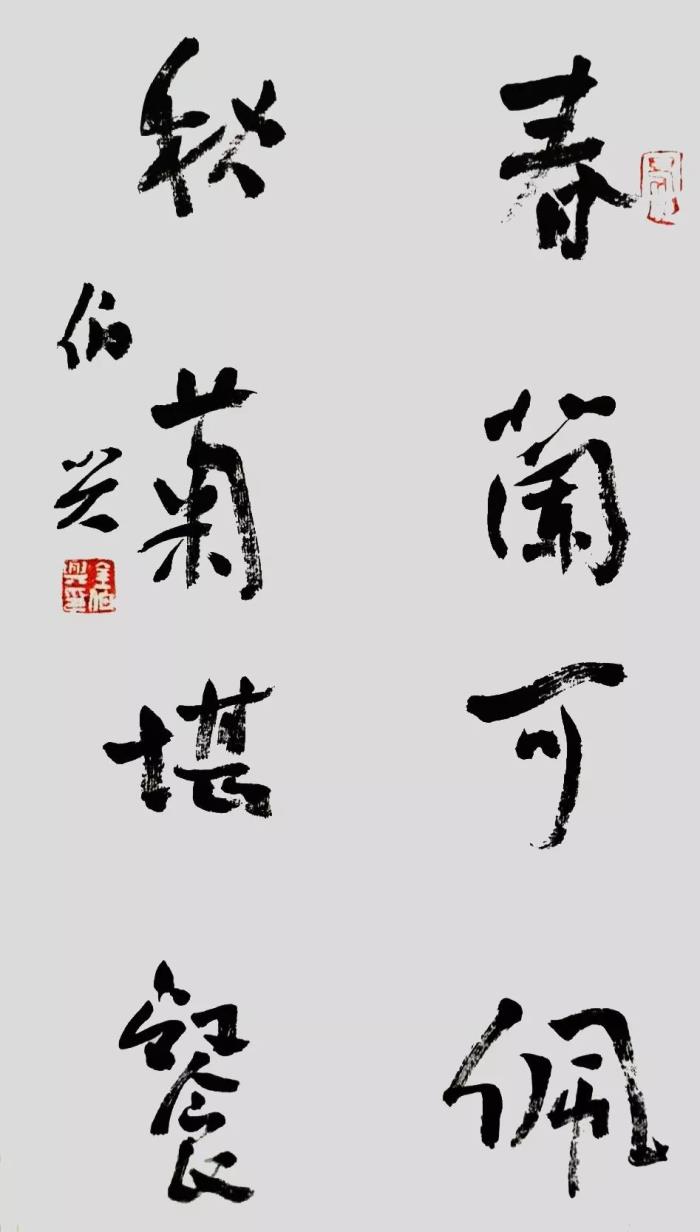 春蘭可佩
秋菊堪餐
伯兴